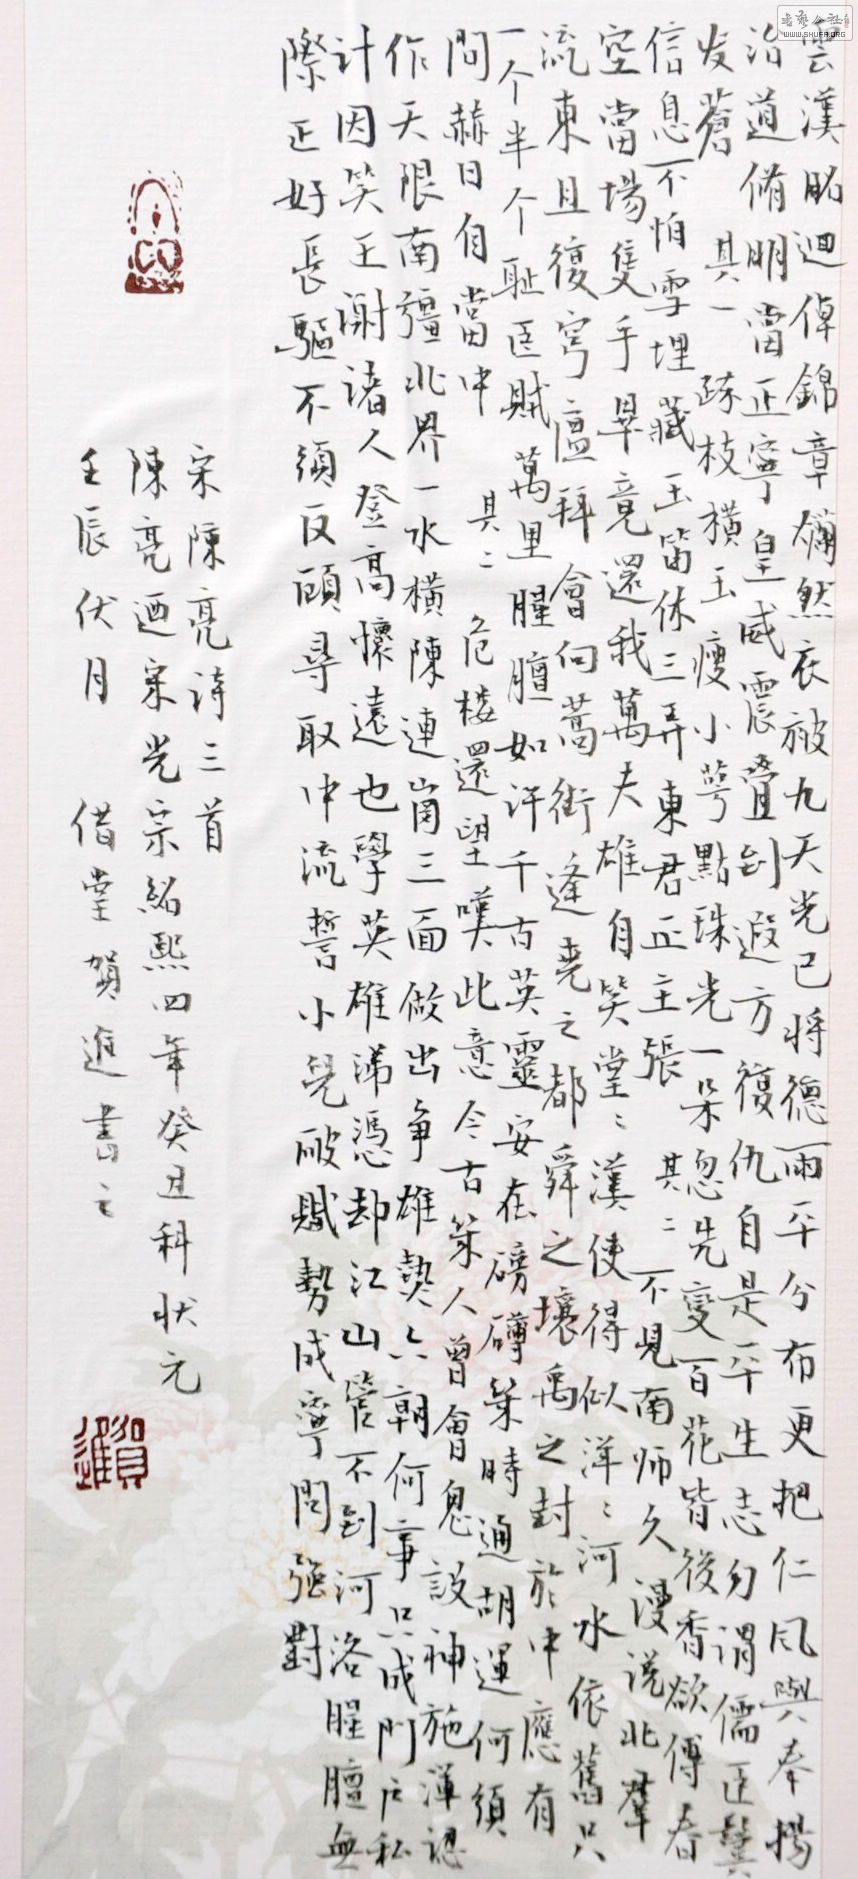 雲漢昭迴倬錦章爛然衣被九天光已將德雨平分布更把仁风與奉揚
治道脩明當正寧皇威震疊到遐方復仇自是平生志勿谓儒臣鬢
发蒼 其一 疎枝橫玉瘦小萼點珠光一朵忽先變百花皆後香欲傅春
信息不怕雪埋藏玉笛休三弄東君正主張 其二 不見南师久漫说北羣
空當場隻手畢竟還我萬夫雄自笑堂〻漢使得似洋〻河水依舊只
流東且復穹廬拜會向藁街逢堯之都舜之壤禹之封於中應有
一个半个恥臣賊萬里腥膻如許千古英靈安在磅礴幾時通胡運何須
問赫日自當中 其二 危楼還望嘆此意今古幾人曾會鬼設神施渾認
作天限南疆北界一水橫陳連崗三面做出争雄勢六朝何事只成門户私
计因笑王谢诸人登高懷遠也學英雄涕憑却江山管不到河洛腥膻無
際正好長驅不須反顧尋取中流誓小兒破賊勢成寧問強對
宋陳亮诗三首
陳亮迺宋光宗紹熙四年癸丑科状元
壬辰伏月 借堂賀進書之
賀進
WWW.SHUFA.ORG